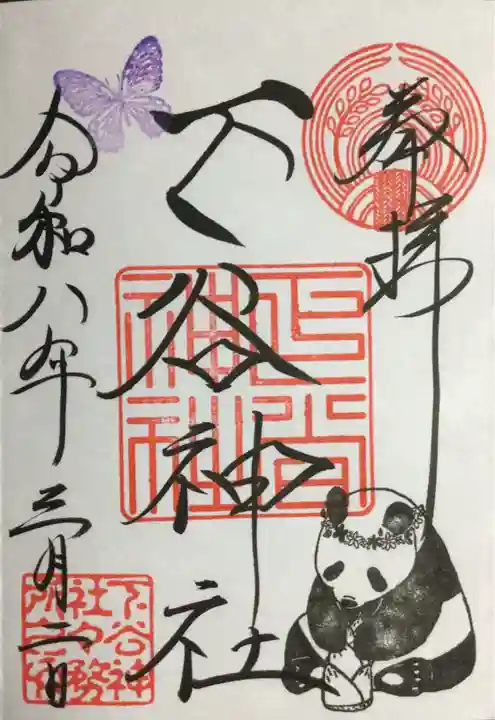 奉拝
下谷神社
下谷神社
令和八年三月二日
下谷神
社社務
所之印